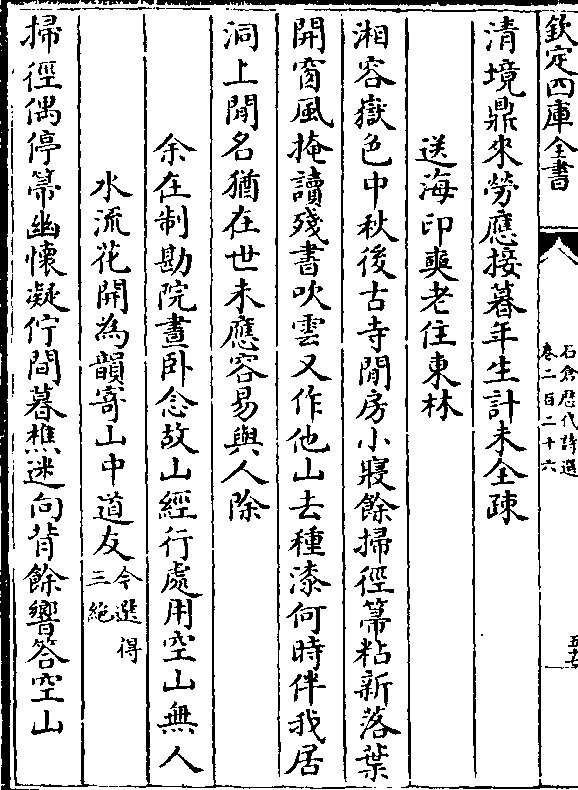 欽定四庫全書
石倉歴代詩選
卷二百二十六
清境鼎來勞應接暮年生計未全疎
送海印奭老住東林
湘容嶽色中秋後古寺閒房小寢餘掃徑箒粘新落葉
開窗風掩讀殘書吹雲又作他山去種漆何時伴我居
洞上聞名猶在世未應容易與人除
余在制勘院晝卧念故山經行處用空山無人
水流花開為韻寄山中道友今選得三絶
掃徑偶停箒幽懷凝佇間暮樵迷向背餘響答空山